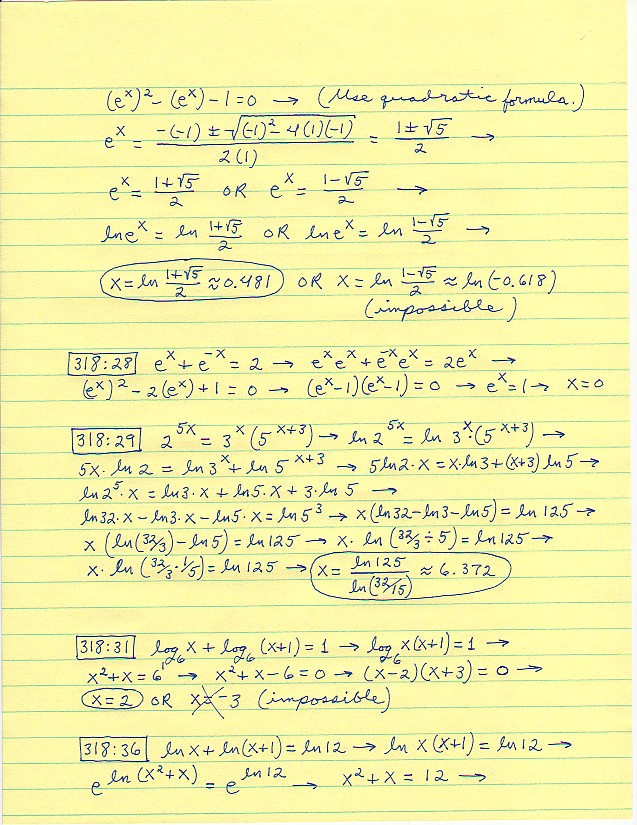 (e^x)² - (e^x) - 1 = 0 → (Use quadratic formula.)
e^x = (-(-1) ± √((-1)² - 4(1)(-1))) / 2(1) = (1 ± √5)/2 →
e^x = (1+√5)/2 OR e^x = (1-√5)/2 →
ln e^x = ln (1+√5)/2 OR ln e^x = ln (1-√5)/2 →
x = ln (1+√5)/2 ≈ 0.481 OR x = ln (1-√5)/2 ≈ ln(-0.618)
(impossible)
318:28 e^x + e^-x = 2 → e^x e^x + e^-x e^x = 2e^x →
(e^x)² - 2(e^x) + 1 = 0 → (e^x - 1)(e^x - 1) = 0 → e^x = 1 → x = 0
318:29 2^5x = 3^x (5^x+3) → ln 2^5x = ln 3^x·(5^x+3) →
5x · ln 2 = ln 3^x + ln 5^x+3 → 5 ln 2 · x = x · ln 3 + (x+3) ln 5 →
ln 2^5 · x = ln 3 · x + ln 5 · x + 3 · ln 5 →
ln 32 · x - ln 3 · x - ln 5 · x = ln 5³ → x (ln 32 - ln 3 - ln 5) = ln 125 →
x (ln(32/3) - ln 5) = ln 125 → x · ln (32/3 ÷ 5) = ln 125 →
x · ln (32/3 · 1/5) = ln 125 → x = ln 125 / ln(32/15) ≈ 6.372
318:31 log_6 x + log_6 (x+1) = 1 → log_6 x(x+1) = 1 →
x² + x = 6^1 → x² + x - 6 = 0 → (x-2)(x+3) = 0 →
x = 2 OR x = -3 (impossible)
318:36 ln x + ln(x+1) = ln 12 → ln x(x+1) = ln 12 →
e^ln(x²+x) = e^ln 12 → x² + x = 12 →